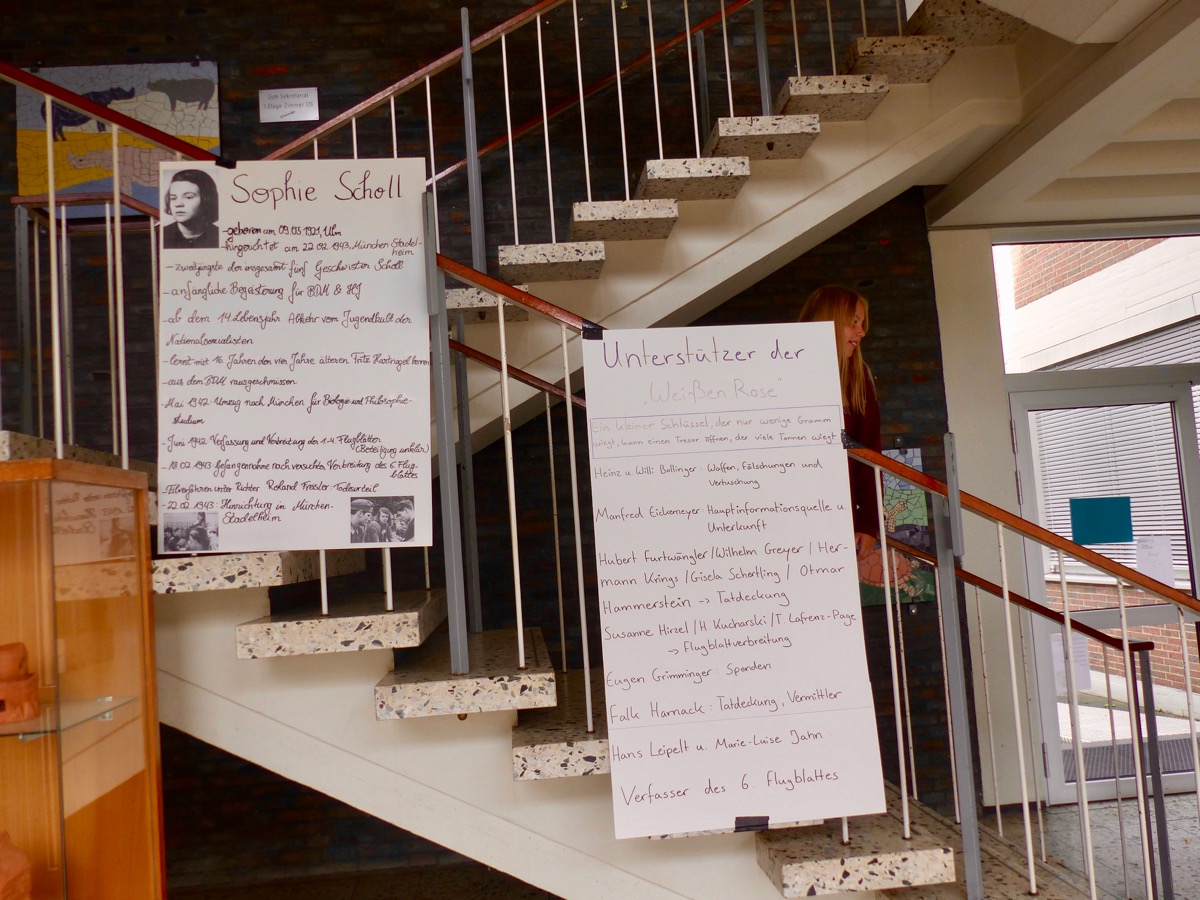 Zum Sekretariat
1. Etage - Zimmer 115
Sophie Scholl
- geboren am 09.05.1921, Ulm
- hingerichtet am 22.02.1943, München Stadel-
heim
- zweitjüngste der insgesamt fünf Geschwister Scholl
- anfängliche Begeisterung für BDM & HJ
- ab dem 14. Lebensjahr Abkehr vom Jugendkult der
Nationalsozialisten
- lernt mit 16 Jahren den vier Jahre älteren Fritz Hartnagel kennen
- aus dem BDM rausgeschmissen
- Mai 1942: Umzug nach München für Biologie und Philosophie-
studium
- Juni 1942 Verfassung und Verbreitung der 1.-4. Flugblätter
(Beteiligung unklar)
- 18.02.1943 Gefangennahme nach versuchter Verbreitung des 6. Flug-
blattes
- Eilverfahren unter Richter Roland Freisler - Todesurteil
- 22.02.1943: Hinrichtung in München-
Stadelheim
Unterstützer der
"Weißen Rose"
Ein kleiner Schlüssel, der nur wenige Gramm
wiegt, kann einen Tresor öffnen, der viele Tonnen wiegt
Heinz u. Willi Bollinger: Waffen, Fälschungen und
Vertuschung
Manfred Eickemeyer: Hauptinformationsquelle u
Unterkunft
Hubert Furtwängler / Wilhelm Greyer / Her-
mann Krings / Gisela Schertling / Otmar
Hammerstein -> Tatdeckung
Susanne Hirzel / H. Kucharski / T. Lafrenz-Page
-> Flugblattverbreitung
Eugen Grimminger: Spenden
Falk Harnack: Tatdeckung, Vermittler
Hans Leipelt u. Marie-Luise Jahn
Verfasser des 6 Flugblattes